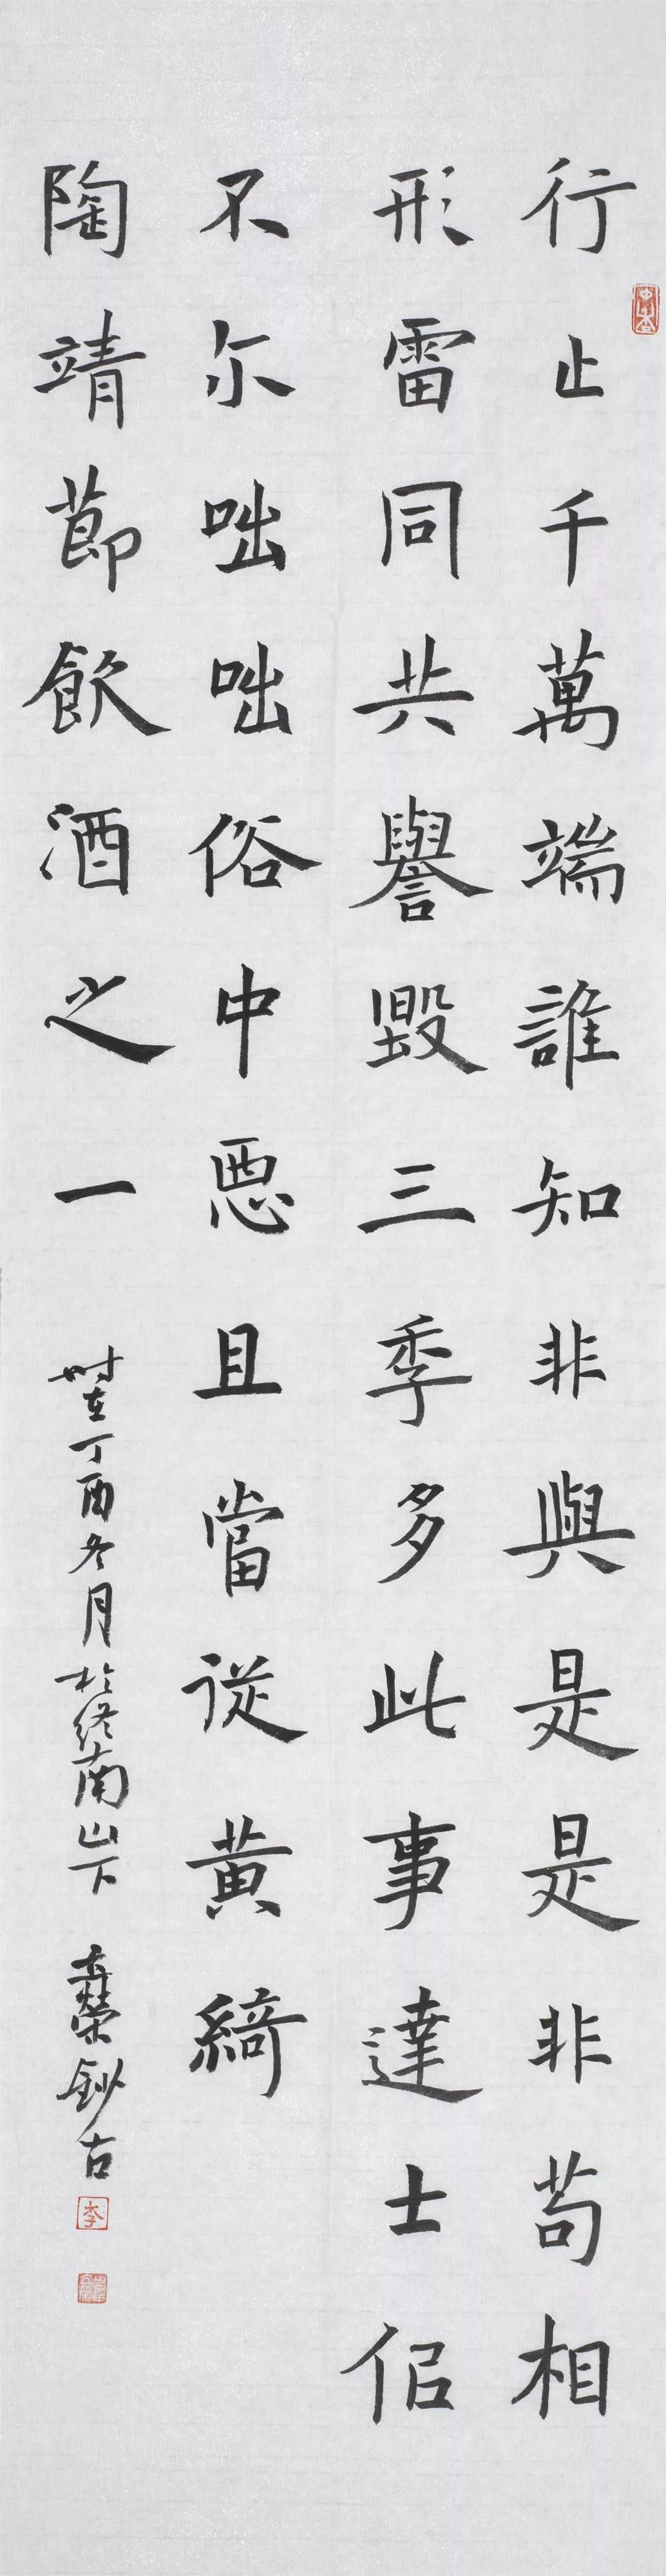 行止千萬端誰知非與是是非苟相
形雷同共譽毀三季多此事達士佀
不尓咄咄俗中惡且當從黃綺
陶靖節飲酒之一
時在丁酉冬月於終南山下 榮鈔古
李